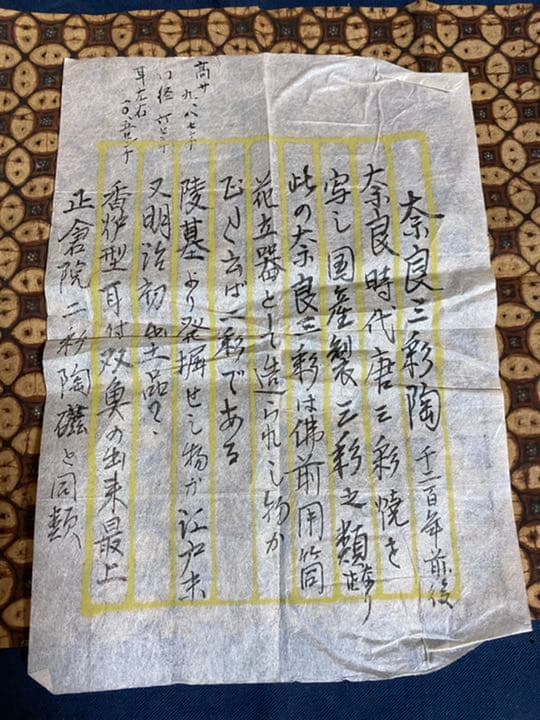 奈良三彩陶 千二百年前後
奈良時代唐三彩焼き
写し国産製三彩之類
此の奈良三彩は佛前用筒
花立器として造られし物か
正しく云ば二彩である
陵墓より発掘せし物か江戸末
又明治初出土品?.
香炉型耳は双魚の出来最上
正倉院二彩陶磁と同類
高サ九、八センチ
口径六センチ
耳左右
一〇、五センチ